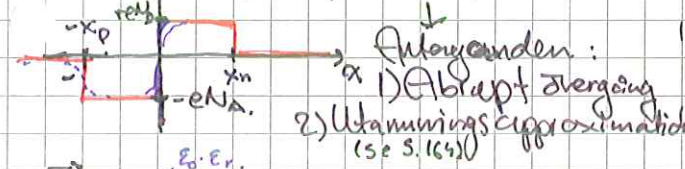 +eN_D
-x_p
x_n
x
-eN_A.
Antaganden:
1) Abrupt övergång
2) Utarmningsapproximation
(se s. 164)
ε₀·εᵣ